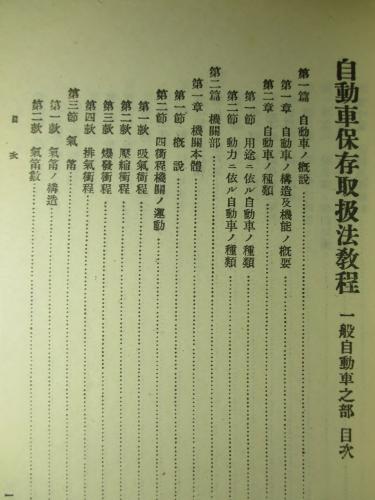 自動車保存取扱法教程 一般自動車之部 目次
第一篇 自動車ノ概説
第一章 自動車ノ構造及機能ノ概要
第二章 自動車ノ種類
第一節 用途ニ依ル自動車ノ種類
第二節 動力ニ依ル自動車ノ種類
第二篇 機關部
第一章 機關本體
第一節 概說
第二節 四衝程機關ノ運動
第一款 吸氣衝程
第二款 壓縮衝程
第三款 爆發衝程
第四款 排氣衝程
第三節 氣筩
第一款 氣筩ノ構造
第二款 氣筩數
目次
一